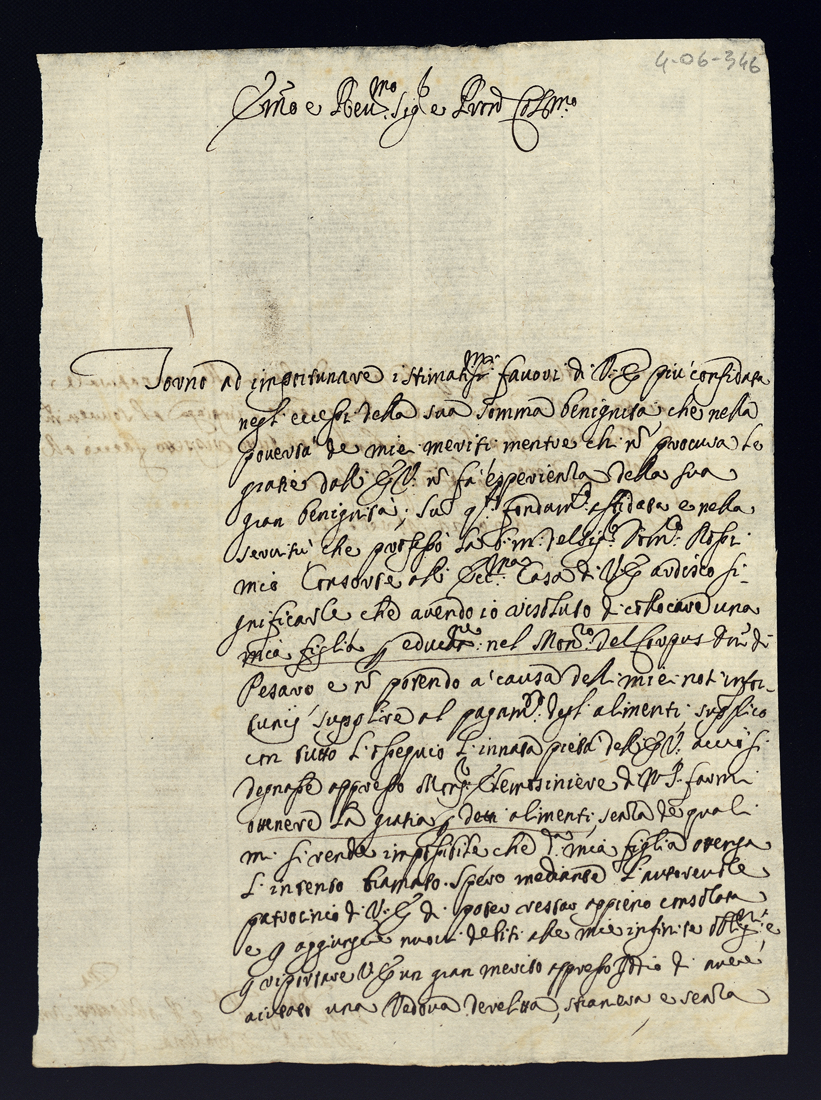 4-06-346
Em̃o e Reu.mo Sig.r e Pron Col.mo
Torno ad importunare i stimatis.mi fauori di V. E. più confidata
negl'eccessi della sua somma benignità che nella
pouertà de miei meriti mentre chi nõ procura le
gratie dall'E. V. nõ fà esperienza della sua
gran benignità; Su q.to fondam.to affidata e nella
seruitù che professò la b. m. del Sig.r Dom.co Rossi
mio Consorte all'Ecc.ma Casa di V. E. ardisco si-
gnificarle che auendo io risoluto di collocare una
mia figlia p educat.ne nel Mon.ro del Corpus Dñi di
Pesaro e nõ potendo a' causa delli miei noti infor-
tunij supplire al pagam.to degl'alimenti supplico
con tutto l'ossequio l'innata pietà dell'E. V. acciò si
degnasse appresso Mons.r Elemosiniere di N. S. farmi
ottenere la gratia p detti alimenti, senza de quali
mi si rende impossibile che d.a mia figlia ottenga
l'intento bramato. Spero mediante l'autoreuole
patrocinio di V. E. di poter restar appieno consolata
e p aggiunger nuoui debiti alle mie infinite obblig.ni e
p riportare V. E. un gran merito appresso Iddio di auere
aiutato una Vedoua derelitta, straniera e senza